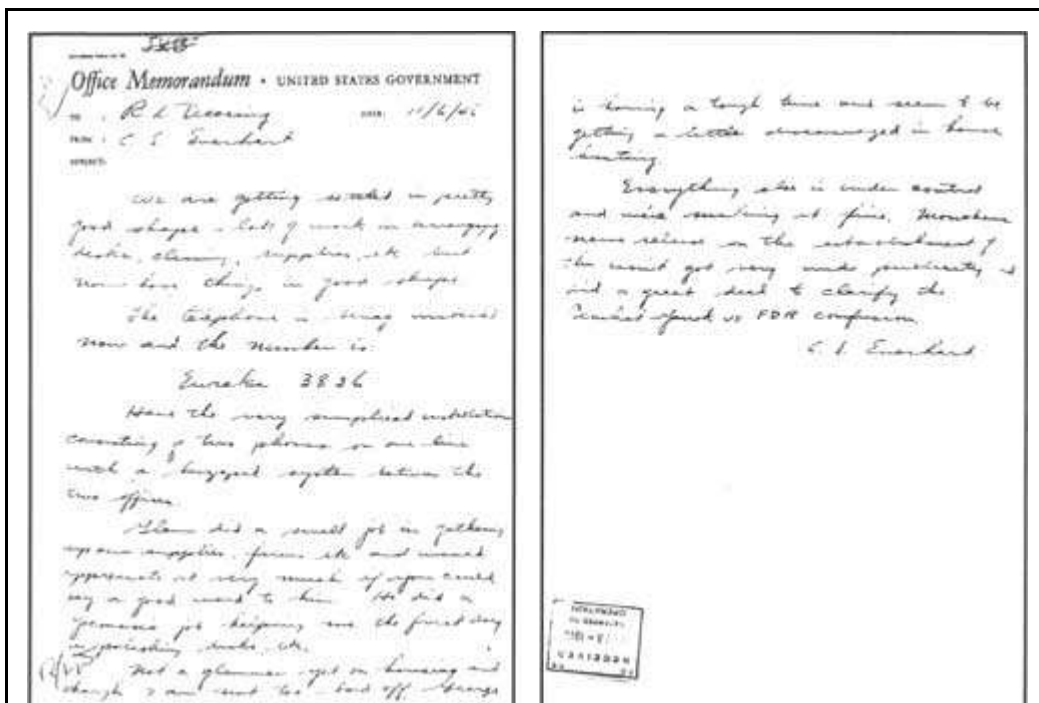 Office Memorandum • UNITED STATES GOVERNMENT
TO : R L Deering DATE: 11/6/46
FROM : C S Everhart
SUBJECT:
We are getting settled in pretty
good shape - lots of work in arranging
desks, cleaning, supplies, etc but
now have things in good shape
The telephone is being installed
now and the number is:
Eureka 3826
Have the very simplified installation
consisting of two phones on one line
with a system between the
two offices.
did a swell job in gathering
up our supplies, forms etc and would
appreciate it very much if you could
say a good word to him. He did a
job helping me the first day
in polishing desks, etc.
Not a glimmer yet on housing and
though I am not too bad off
is having a tough time and seem to be
getting a little discouraged in house
hunting.
Everything else is under control
and we're making it fine.
news release on the establishment of
the got very publicity &
did a great deal to clarify the
vs FDR confusion.
C S Everhart
RECEIVED